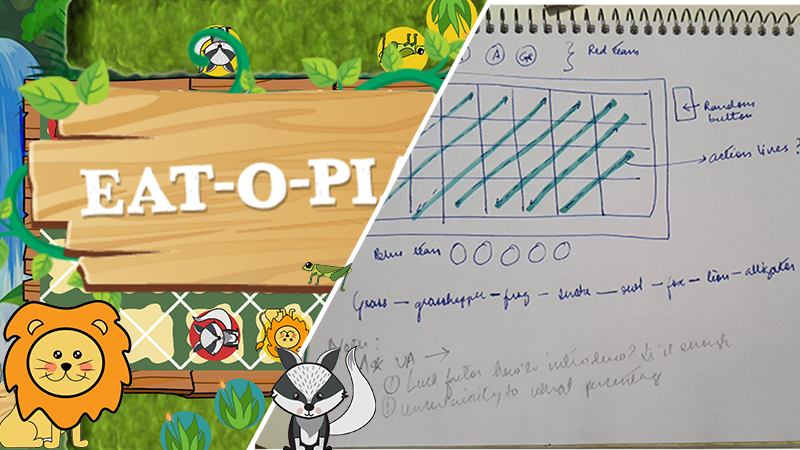 EAT-O-PIA
A GR } Red team
Random
button
action lines ?
Blue team
Grass — grasshopper — frog — snake — owl — fox — lion — alligator
① Luck factor how to introduce? Is it enough
② uncertainity to what percentage